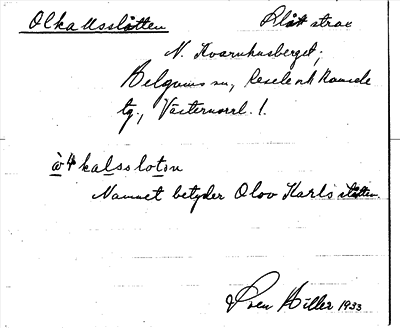 Olkallsslåtten Slått strax
N. Kvarnhusberget;
Helgums sn, Resele o. Ramsele
tg., Västernorrl. l.
ò4 kalsslotən
Namnet betyder Olov Karlsslåtten.
Sven Hiller 1933